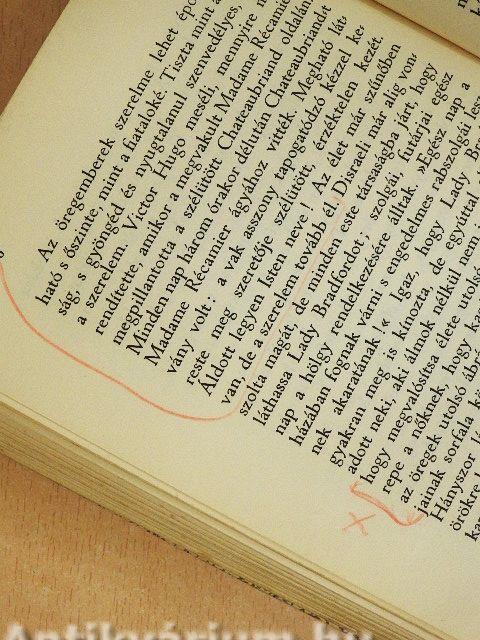 Az öregemberek szerelme lehet
ható s őszinte, mint a fiataloké. Tiszta mint a
ság, s gyöngéd és nyugtalanul szenvedélyes,
a szerelem. Victor Hugo meséli, mennyire
rendítette, amikor a megvakult Madame Récamier
megpillantotta a szélütött Chateaubriand oldalán
Minden nap három órakor délután Chateaubriandt
Madame Récamier ágyához vitték. Megható lát-
vány volt: a vak asszony tapogatódzó kézzel ke-
reste meg szeretője szélütött érzéktelen kezét.
Áldott legyen Isten neve! Az élet már szűnőben
van, de a szerelem tovább él. Disraeli már alig von-
szolta magát, de minden este társaságba járt, hogy
láthassa Lady Bradfordot; szolgái, futárjai egész
nap a hölgy rendelkezésére álltak. »Egész nap a
házában fognak várni s engedelmes rabszolgái
nek akaratának!« Igaz, hogy Lady
gyakran meg is kínozta, de egyúttal
adott neki, aki álmok nélkül nem
hogy megvalósítsa élete utolsó
repe a nőknek, hogy
az öregek utolsó
jainak sorfala
Hányszor
örökre
Antikvárium.hu